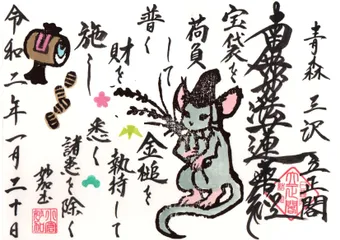 青森 三沢
南無妙法蓮華経
宝袋を
荷負
して
普く
財を
施し
金槌を
執持して
悉く
諸患を除く
令和二年一月二十日